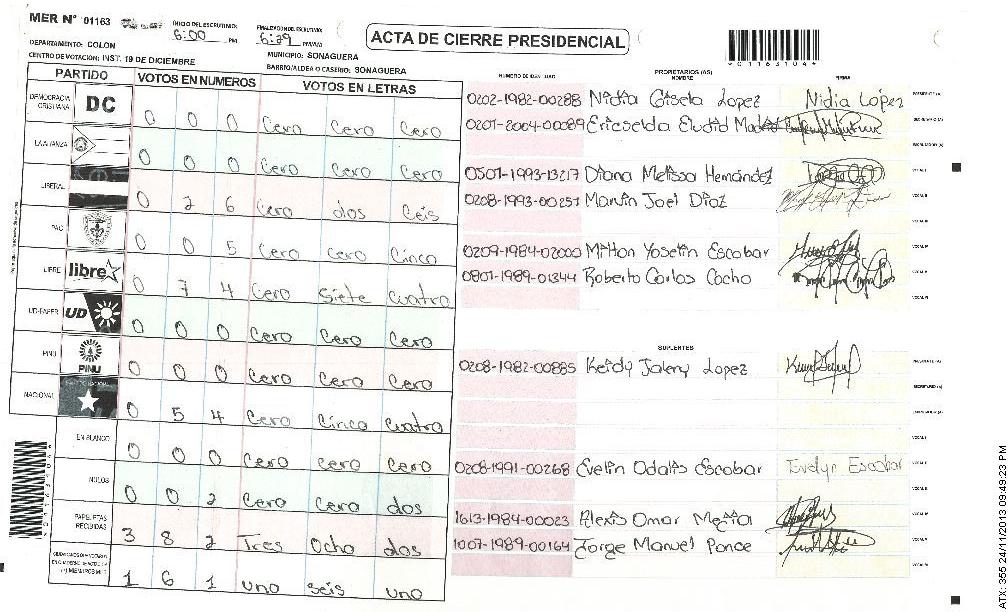 MER N° 01163
INICIO DEL ESCRUTINIO: 6:00 PM
FINALIZACION DE ESCRUTINIO: 6:29 PM/AM
ACTA DE CIERRE PRESIDENCIAL
DEPARTAMENTO: COLON
MUNICIPIO: SONAGUERA
CENTRO DE VOTACION: INST. 19 DE DICIEMBRE
BARRIO/ALDEA O CASERIO: SONAGUERA
PARTIDO VOTOS EN NUMEROS VOTOS EN LETRAS
DEMOCRACIA CRISTIANA DC 0 0 0 Cero Cero Cero
LA ALIANZA 0 0 0 Cero Cero Cero
LIBERAL 0 2 6 Cero dos Ceis
PAC 0 0 5 Cero Cero Cinco
LIBRE libre 0 7 4 Cero Siete Cuatro
UD-FAPER UD 0 0 0 Cero Cero Cero
PINU PINU 0 0 0 Cero Cero Cero
NACIONAL 0 5 4 Cero Cinco Cuatro
EN BLANCO 0 0 0 Cero Cero Cero
NULOS 0 0 2 Cero Cero dos
PAPELETAS RECIBIDAS 3 8 2 Tres Ocho dos
1 6 1 uno seis uno
01163104
NUMERO DE IDENTIDAD PROPIETARIOS (AS) NOMBRE FIRMA
0202-1982-00288 Nidia Gisela Lopez Nidia López PRESIDENTE (A)
0201-2004-00089 Ericselda Eludid Madrid SECRETARIO (A)
ESCRUTADOR (A)
0501-1993-13217 Diana Melissa Hernández VOCAL I
0208-1993-00257 Marvin Joel Diaz VOCAL II
VOCAL III
0209-1984-02000 Milton Yoselin Escobar VOCAL IV
0801-1989-01344 Roberto Carlos Cocho VOCAL V
VOCAL VI
SUPLENTES
0208-1982-00885 Keidy Jaleny Lopez PRESIDENTE (A)
SECRETARIO (A)
ESCRUTADOR (A)
VOCAL I
0208-1991-00268 Evelin Odalis Escobar Evelyn Escobar VOCAL II
VOCAL III
1613-1984-00023 Alexis Omar Mejia VOCAL IV
1007-1989-00164 Jorge Manuel Ponce VOCAL V
VOCAL VI
ATX: 355 24/11/2013 09:49:23 PM